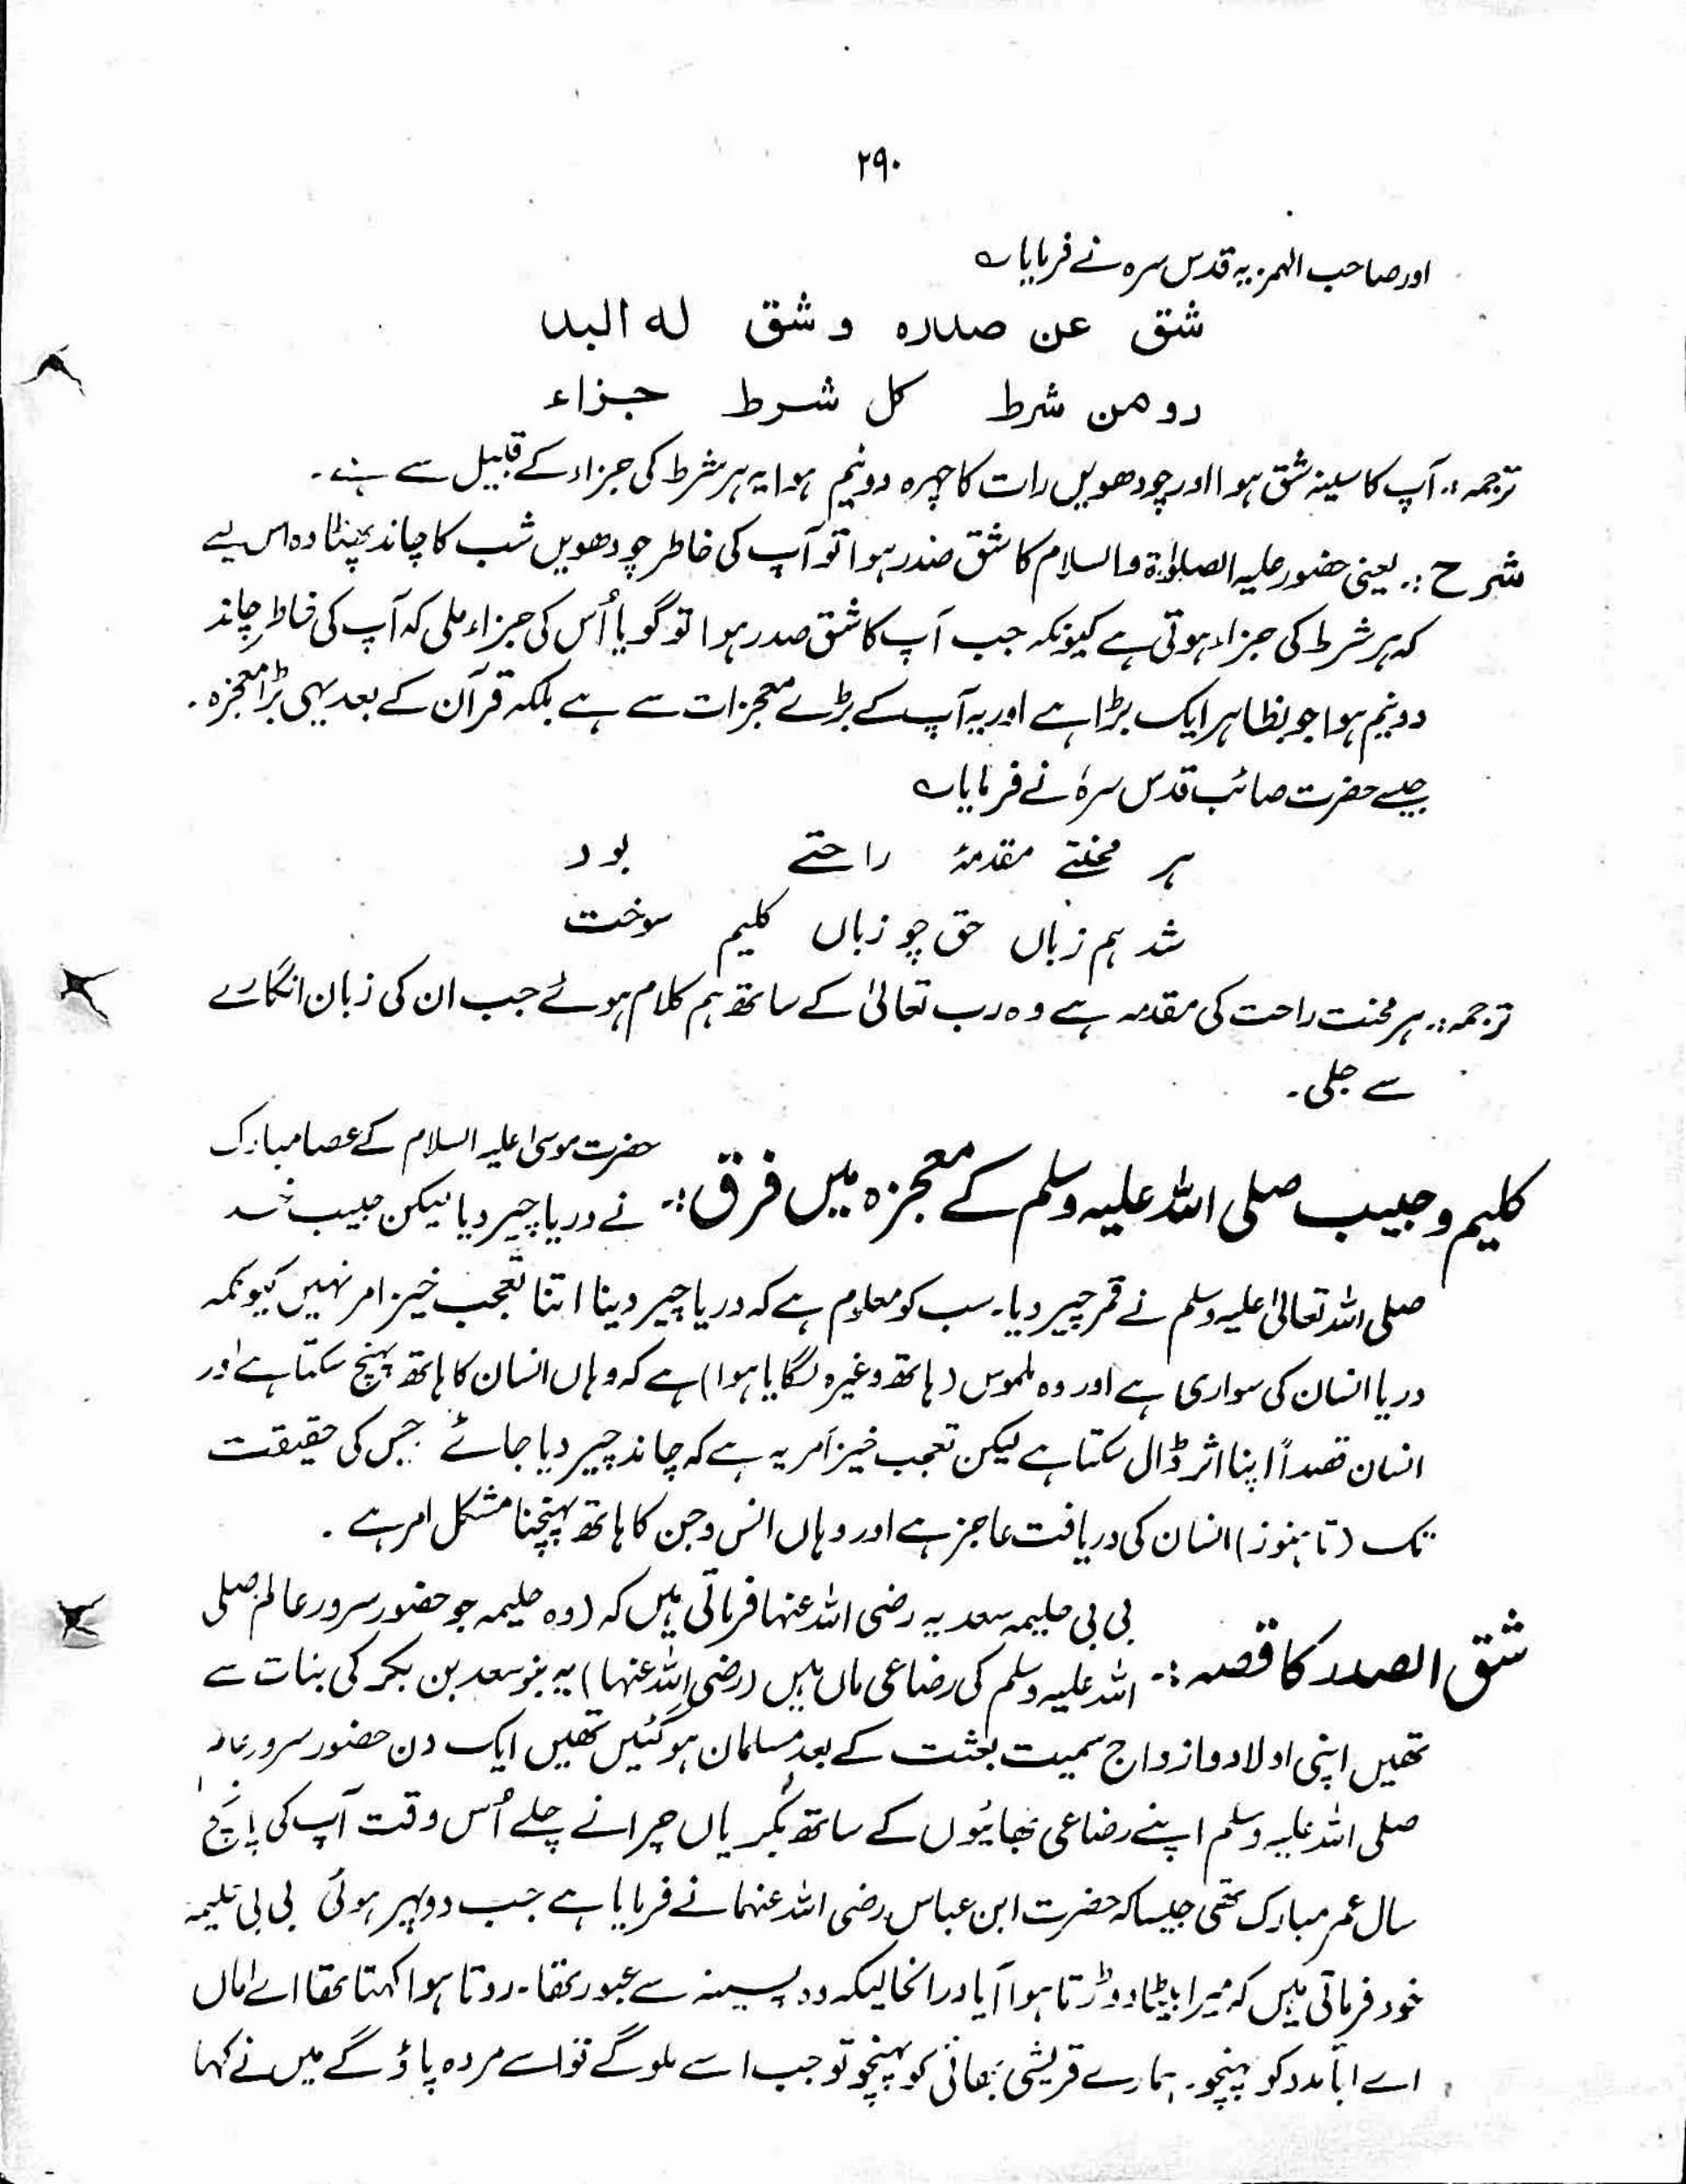 ۲۹۰
اور صاحب الہمزیہ قدس سرہ نے فرمایا ؎
شق عن صدرہ و شق لہ البد
رومن شرط کل شرط جزاء
ترجمہ :۔ آپ کا سینہ شق ہوا اور چودھویں رات کا چہرہ دونیم ہوا یہ ہر شرط کی جزاء کے قبیل سے ہے ۔
شرح :۔ یعنی حضور علیہ الصلوٰۃ والسلام کا شق صدر ہوا تو آپ کی خاطر چودھویں شب کا چاند پھٹا وہ اس لیے
کہ ہر شرط کی جزاء ہوتی ہے کیونکہ جب آپ کا شق صدر ہوا تو گویا اُس کی جزاء ملی کہ آپ کی خاطر چاند
دونیم ہوا جو بظاہر ایک بڑا ہے اور یہ آپ کے بڑے معجزات سے ہے بلکہ قرآن کے بعد یہی بڑا معجزہ ۔
جیسے حضرت صائب قدس سرہٗ نے فرمایا ؎
ہر محنتے مقدمۂ راحتے بود
شد ہم زباں حق چو زباں کلیم سوخت
ترجمہ :۔ ہر محنت راحت کی مقدمہ ہے وہ رب تعالیٰ کے ساتھ ہم کلام ہوئے جب ان کی زبان انگارے
سے جلی ۔
کلیم و حبیب صلی اللہ علیہ وسلم کے معجزہ میں فرق :۔ حضرت موسیٰ علیہ السلام کے عصا مبارک
نے دریا چیر دیا لیکن حبیب خد
صلی اللہ تعالیٰ علیہ وسلم نے قمر چیر دیا۔ سب کو معلوم ہے کہ دریا چیر دینا اتنا تعجب خیز امر نہیں کیونکہ
دریا انسان کی سواری ہے اور وہ ملموس (ہاتھ وغیرہ لگایا ہوا) ہے کہ وہاں انسان کا ہاتھ پہنچ سکتا ہے اور
انسان قصداً اپنا اثر ڈال سکتا ہے لیکن تعجب خیز امر یہ ہے کہ چاند چیر دیا جائے جس کی حقیقت
تک (تا ہنوز) انسان کی دریافت عاجز ہے اور وہاں انس و جن کا ہاتھ پہنچنا مشکل امر ہے ۔
شق الصدر کا قصہ :۔ بی بی حلیمہ سعدیہ رضی اللہ عنہا فرماتی ہیں کہ (وہ حلیمہ جو حضور سرور عالم صلی
اللہ علیہ وسلم کی رضاعی ماں ہیں (رضی اللہ عنہا) یہ بنو سعد بن بکر کی بنات سے
تھیں اپنی اولاد و ازواج سمیت بعثت کے بعد مسلمان ہو گئیں تھیں ایک دن حضور سرور عالم
صلی اللہ علیہ وسلم اپنے رضاعی بھائیوں کے ساتھ بکریاں چرانے چلے اُس وقت آپ کی پانچ
سال عمر مبارک تھی جیسا کہ حضرت ابن عباس رضی اللہ عنہما نے فرمایا ہے جب دوپہر ہوئی بی بی حلیمہ
خود فرماتی ہیں کہ میرا بیٹا دوڑتا ہوا آیا درانحالیکہ وہ پسینہ سے عبور تھا۔ روتا ہوا کہتا تھا اے اماں
اے ابا مدد کو پہنچو۔ ہمارے قریشی بھائی کو پہنچو تو جب اسے ملو گے تو اسے مردہ پاؤ گے میں نے کہا